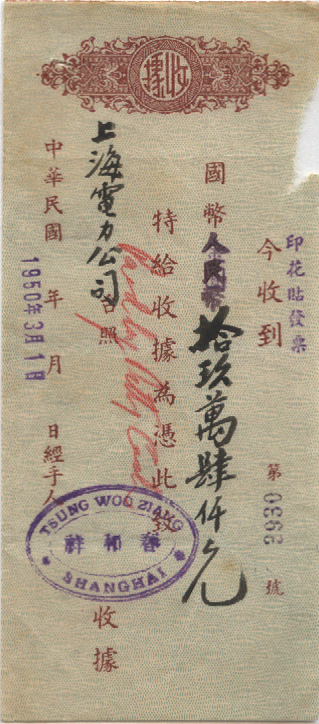 收據
印花貼發票
今收到
第0393號
國幣人民幣拾玖萬肆仟元
特給收據為憑此致
Paid by Petty Cash
上海電力公司台照
中華民國 年 月 日經手人
1950年3月1日
TSUNG WOO ZIANG
春和祥
SHANGHAI
收據